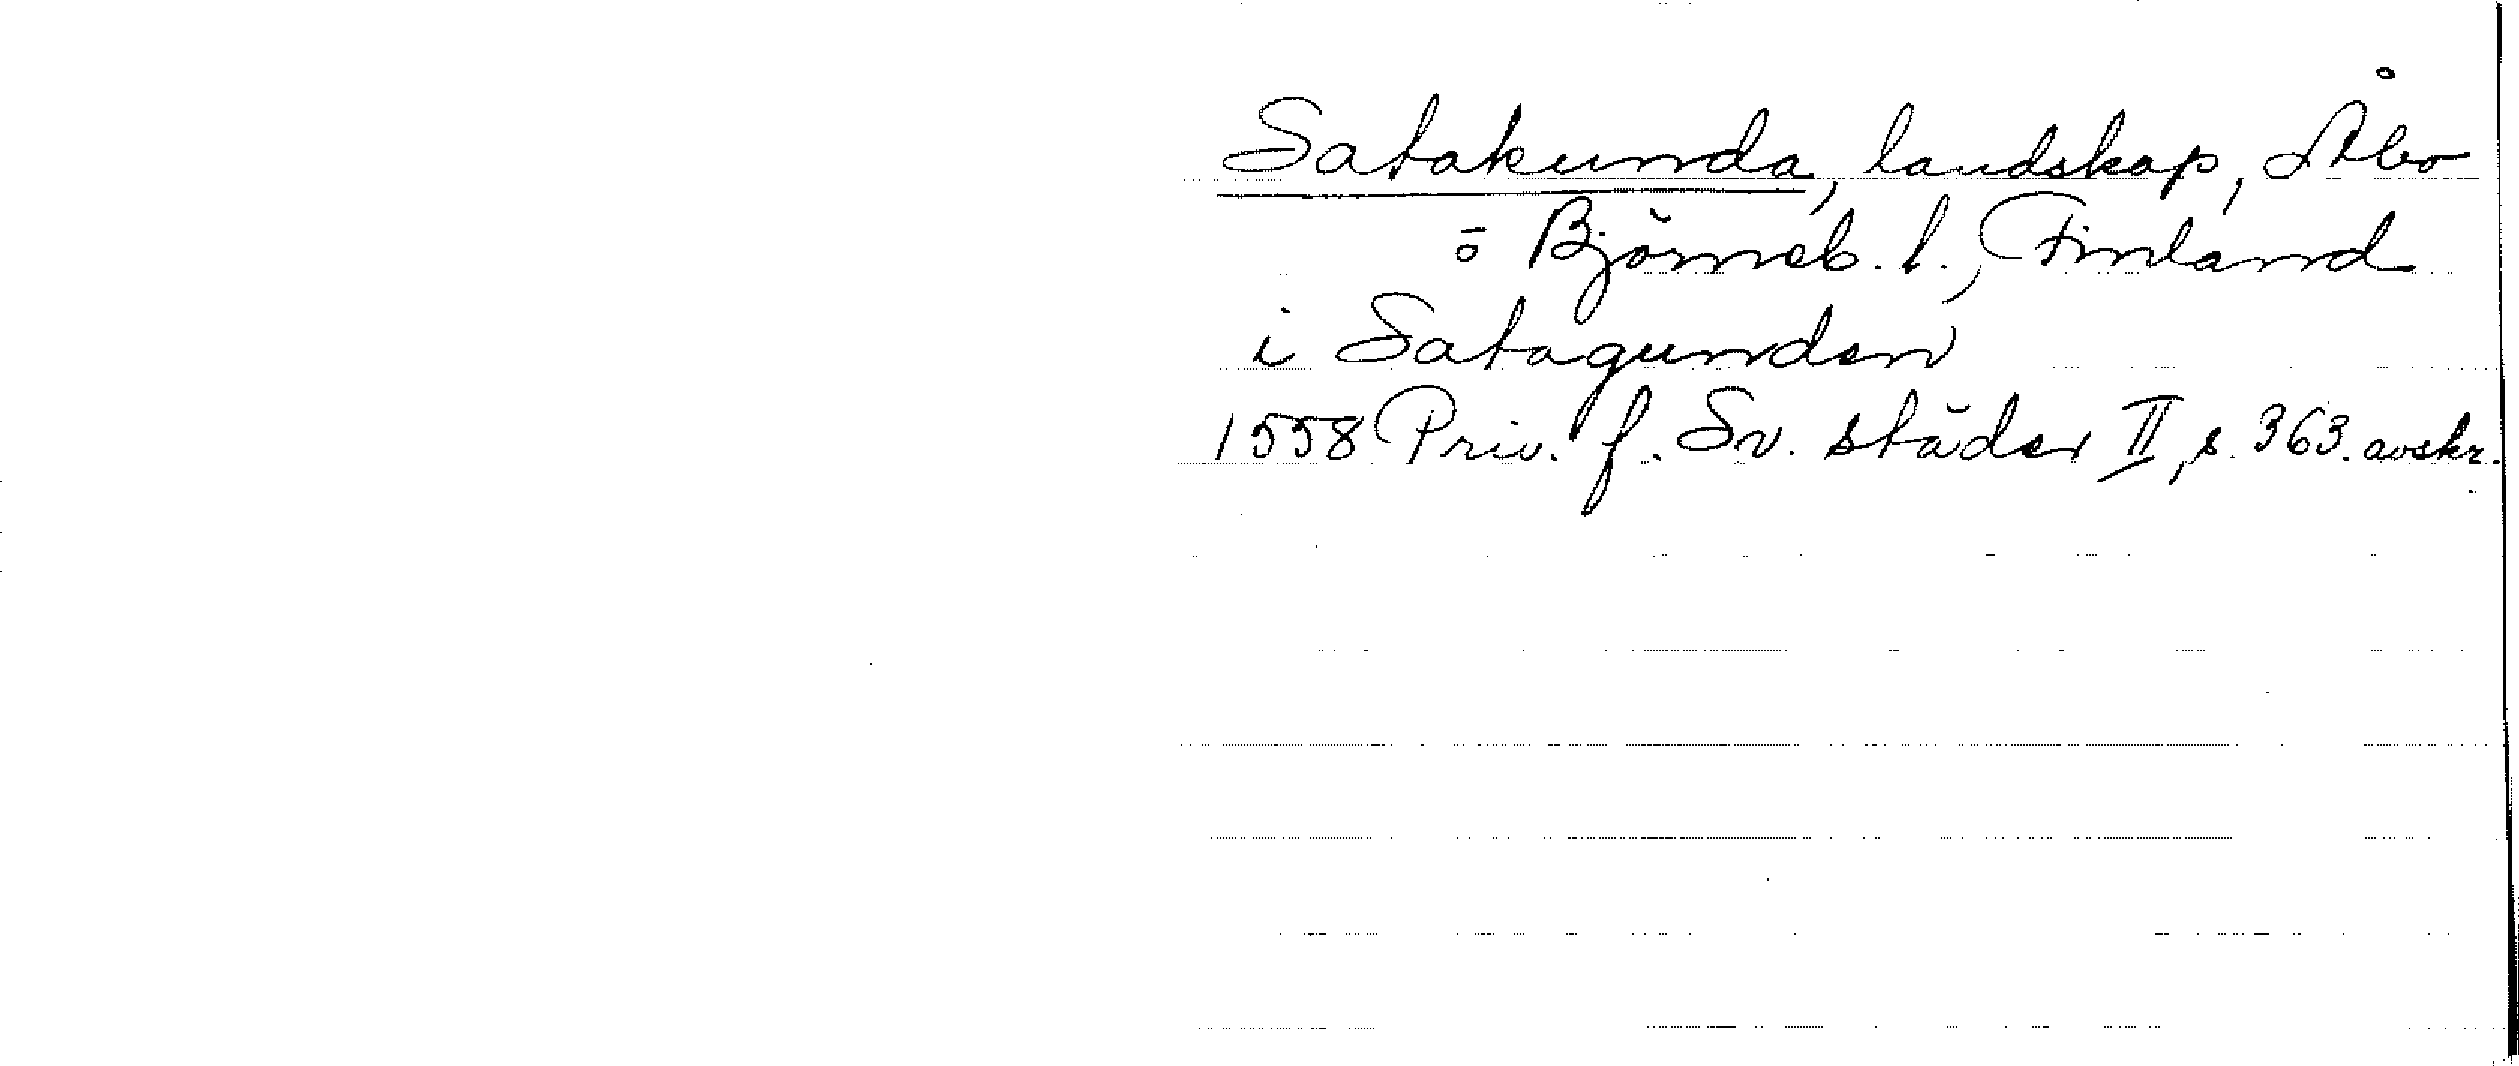 Satakunda, landskap, Åbo
o Björneb. l., Finland
i Satagunden
1558 Priv. f. Sv. städer II, s. 363. avskr.